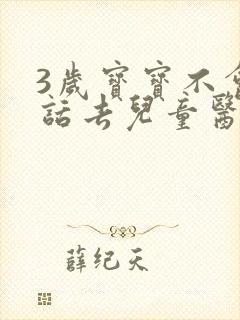 3歲寶寶不會
話去兒童醫
薛纪天